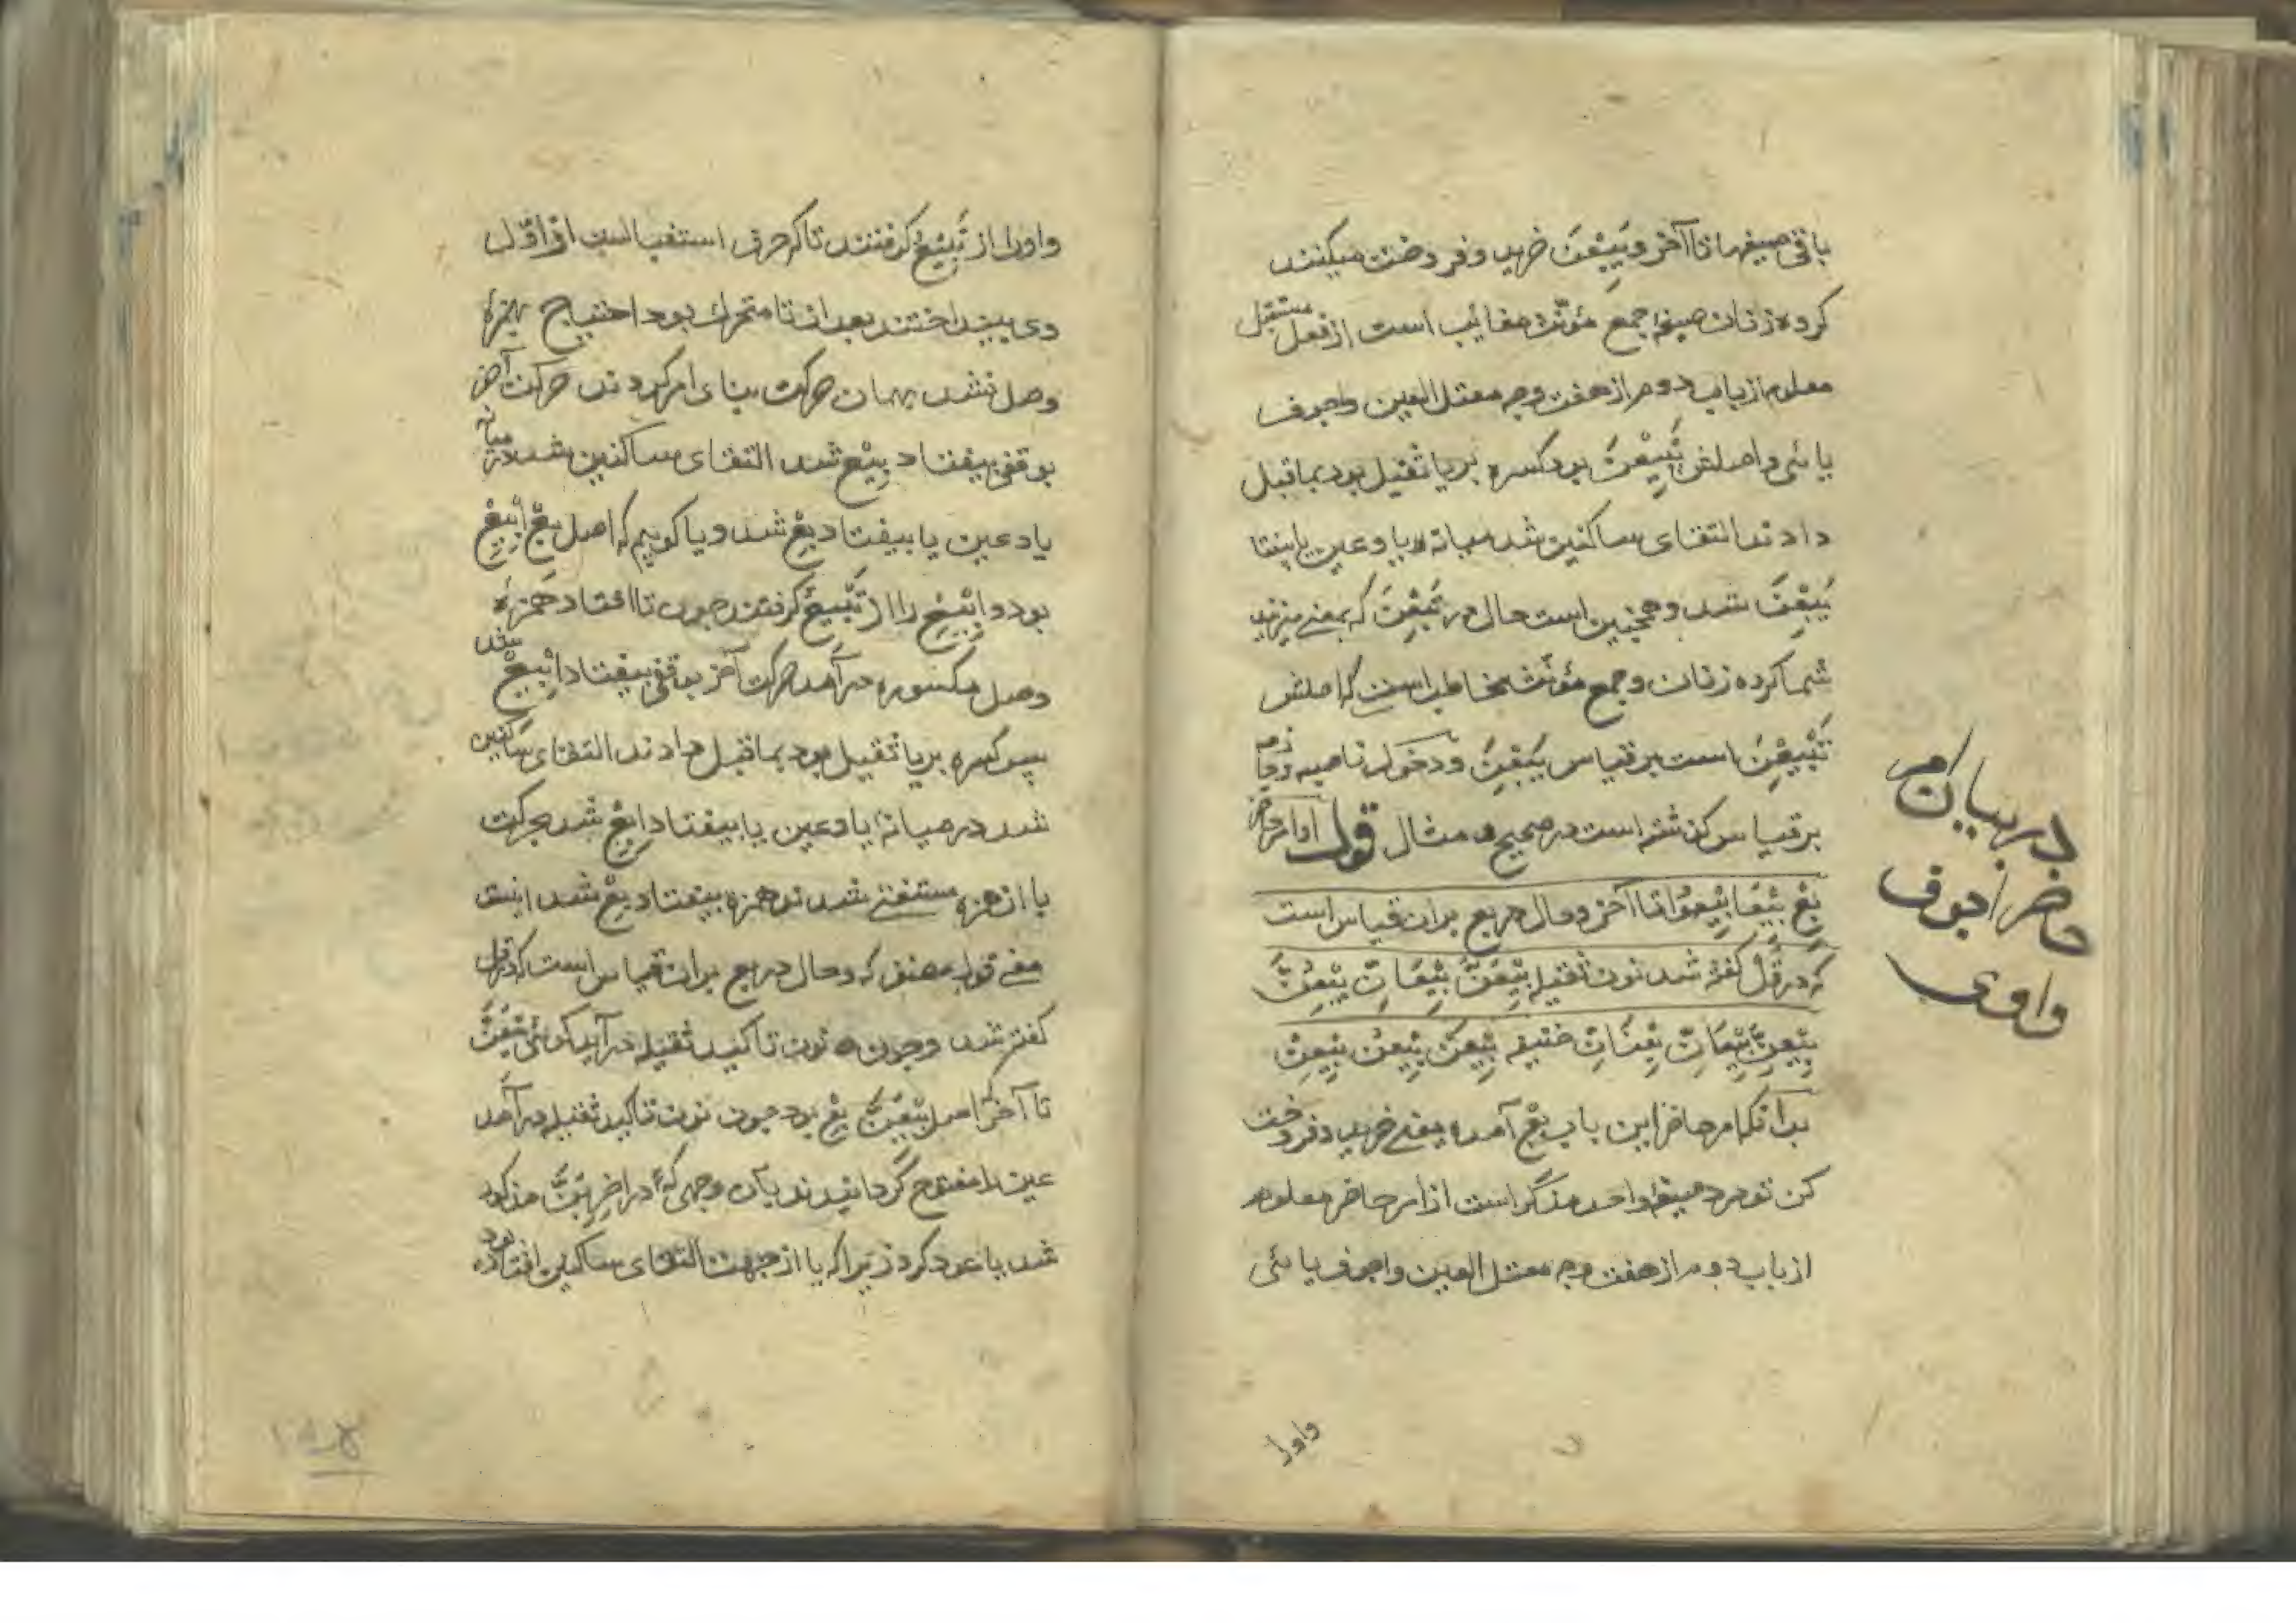 باقی صیغها تا آخر و یَبِیْعْنَ خرید و فروخت میکنند
کروه زنان صیغهٔ جمع مؤنّث مغائب است از فعل مستقبل
معلوم از باب دوم از هفت وجه معتل العین واجوف
یائی و اصلش یَبْیِعْنَ بود کسره بر یا ثقیل بود بماقبل
دادند التقای ساکنین شد میانه یا و عین یا بیفتا
یَبِعْنَ شد و همچنین است حال در تَبِعْنَ که بمعنی
شما کروه زنان و جمع مؤنّث مخاطب است که اصلش
تَبْیِعْنَ است بر قیاس یَبِعْنَ و دخول ناصبه و جازمه
بر قیاس کذشته است در صحیح و مثال قوله اوامر حاضر
بِعْ بِیْعَا بِیْعُوْا تا آخر و حال در بع بران قیاس است
که در قُلْ کفته شد نون ثقیله بِیْعَنَّ بِیْعَانِّ بِیْعُنَّ
بِیْعِنَّ بِیْعَانِّ بِعْنَانِّ خفیفه بِیْعَنْ بِیْعُنْ بِیْعِنْ
بدانکه امر حاضر این باب بِعْ آمده یعنی خرید و فروخت
کن تو مرد صیغهٔ واحد مذکّر است از امر حاضر معلوم
از باب دوم از هفت وجه معتل العین واجوف یائی
در بیان امر
حاضر اجوف
واوی
واورا
واورا از تَبِیْعُ کرفتند تا که حرف استقبالست از اوّل
وی بینداختند بعد از تا متحرک بود احتیاج بهمزهٔ
وصل نشد بهمان حرکت بنای امر کردند حرکت آخر
بوقفی بیفتاد بِیْعْ شد التقای ساکنین شد در میانه
یا و عین یا بیفتاد بِعْ شد و یا کوییم که اصل بِعْ اِبْیِعْ
بود و اِبْیِعْ را از تَبْیِعُ کرفتند چون تا افتاد همزهٔ
وصل مکسوره در آمد حرکت آخر بوقفی بیفتاد اِبْیِعْ شد
پس کسره بر یا ثقیل بود بماقبل دادند التقای ساکنین
شد در میانهٔ یا و عین یا بیفتاد اِبِعْ شد بحرکت
با از همزه مستغنی شدند همزه بیفتاد بِعْ شد اینست
معنی قول مصنف که و حال در بع بران قیاس است که در قل
کفته شد و چون نون تاکید ثقیله در آید کوئی بِیْعَنَّ
تا آخر که اصل بِیْعَنَّ بِعْ بود چون نون تاکید ثقیله در آمد
عین را مفتوح کردانیدند بآن وجهی که در اِضْرِبَنَّ مذکور
شد یا عود کرد زیرا که یا از جهت التقای ساکنین افتاده بود